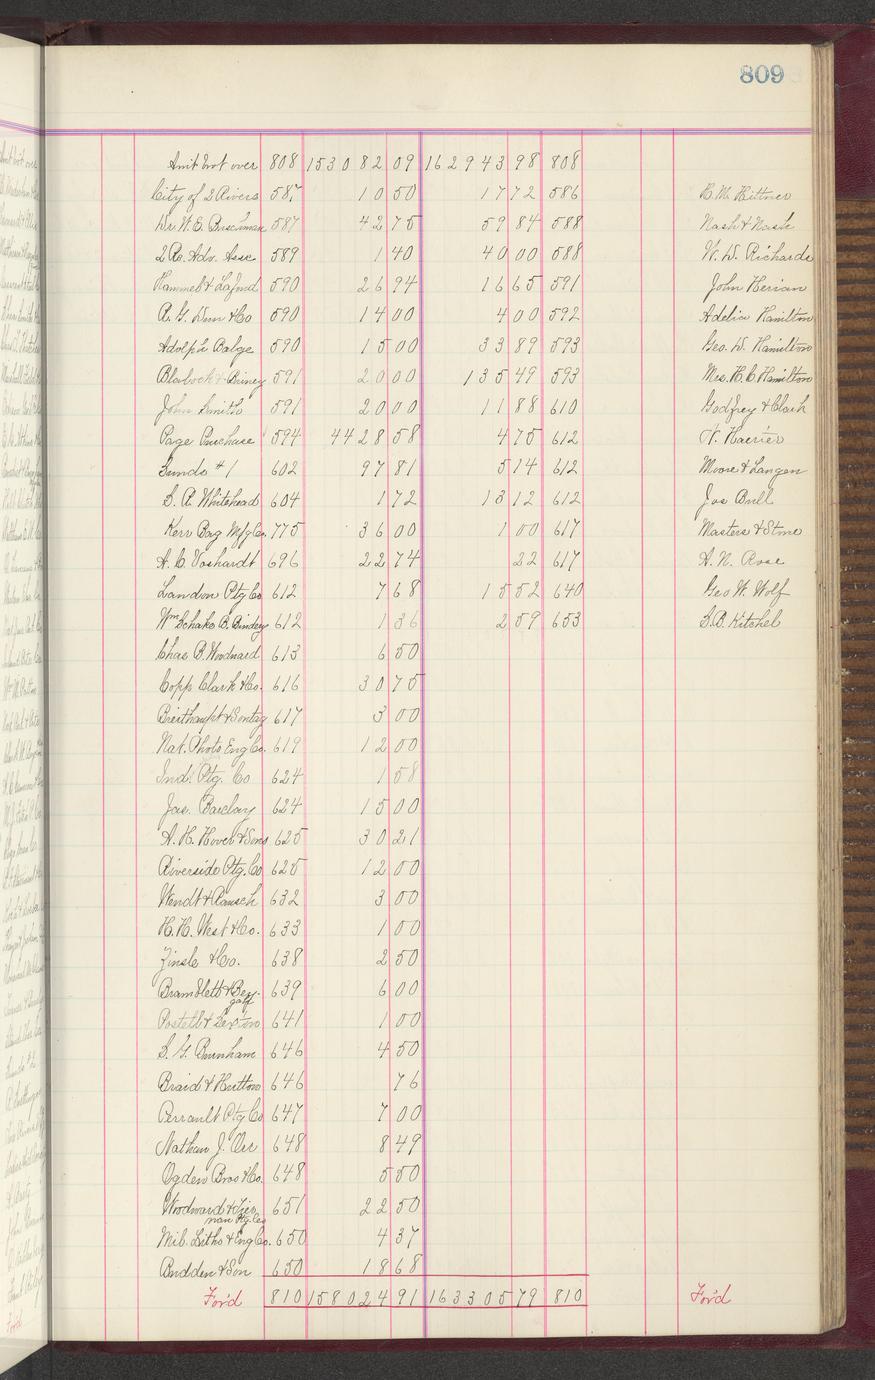 809
Amt brot over 808 153082 09 162943 98 808
City of 2 Rivers 587 10 50 17 72 586 H. M. Hittner
Dr. W. E. Buschman 587 42 75 59 84 588 Nash & Nash
2 Rs. Adv. Assc 589 1 40 40 00 588 W. D. Richards
Hammel & 590 26 94 16 65 591 John Herian
R. G. Dun & Co 590 14 00 4 00 592 Adelia Hamilton
Adolph Balge 590 15 00 33 89 593 Geo. D. Hamilton
Blalock & Briney 591 20 00 135 49 593 Mrs. H. C. Hamilton
John Smith 591 20 00 11 88 610 Godfrey & Clark
Page Purchase 594 4428 58 4 75 612 W.
Sunds #1 602 97 81 5 14 612 Moore & Langen
S. R. Whitehead 604 1 72 13 12 612 Jos Bull
Kerr Bag Mfg Co. 775 36 00 1 00 617 Masters & Stone
A. C. Voshardt 696 22 74 22 617 A. N. Rose
Landon Ptg Co 612 7 68 15 52 640 Geo W. Wolf
Wm Schako B. Bindery 612 1 36 2 59 653 S. B. Kitchel
Chas B. Woodward 613 6 50
Copp Clark & Co. 616 30 75
Breithaupt & Sontag 617 3 00
Nat. Photo Eng Co. 619 12 00
Ind. Ptg. Co 624 1 58
Jas. Barclay 624 15 00
A. H. Hover & Sons 625 30 21
Riverside Ptg. Co 625 12 00
Wendt & Rausch 632 3 00
H. H. West & Co. 633 1 00
Zinsle & Co. 638 2 50
Bramblett & Bey- 639 6 00
gah
Postell & Sexton 641 1 00
S. G. Burnham 646 4 50
Braid & Hutton 646 76
Perrault Ptg Co 647 7 00
Nathan J. Orr 648 8 49
Ogden Bros & Co. 648 5 50
Woodward & Tier 651 22 50
nan Ptg Co
Mil. Litho & Eng Co. 650 4 37
Budden & Son 650 18 68
For'd 810 158024 91 163305 79 810 For'd